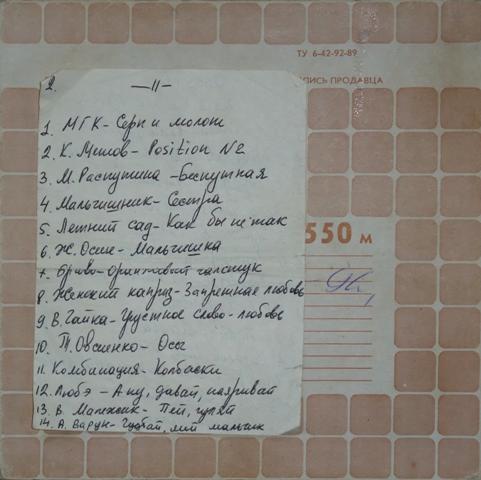 ТУ 6-42-92-89
ПИСЬ ПРОДАВЦА
2. —11—
1. МГК - Серп и молот
2. К. Метов - Position N2
3. М. Распутина - Беспутная
4. Мальчишник - Сестра
5. Летний сад - Как бы не так
6. Ж. Осте - Мальчишка
7. Браво - Оранжевый галстук
8. Женский каприз - Запретная любовь
9. В. Гайка - Грустное слово - любовь
10. Т. Овсиенко - Осы
11. Комбинация - Колбаски
12. Любэ - А ну, давай, наяривай
13. В. Малежик - Пей, гуляй
14. А. Варум - Гудбай, мой мальчик
550 м